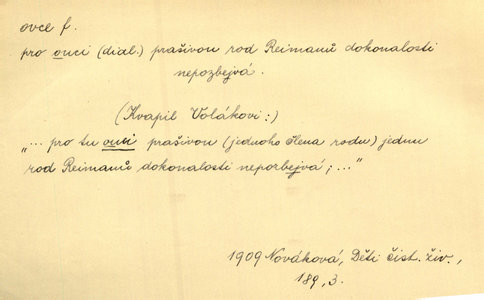 ovce f.
pro ouci (dial.) prašivou rod Reimanů dokonalosti
nepozbejvá.
(Kvapil Volákovi:)
"... pro tu ouci prašivou (jednoho člena rodu) jednu
rod Reimanů dokonalosti nepozbejvá; ..."
1909 Nováková, Děti čist. živ.,
189, 3.